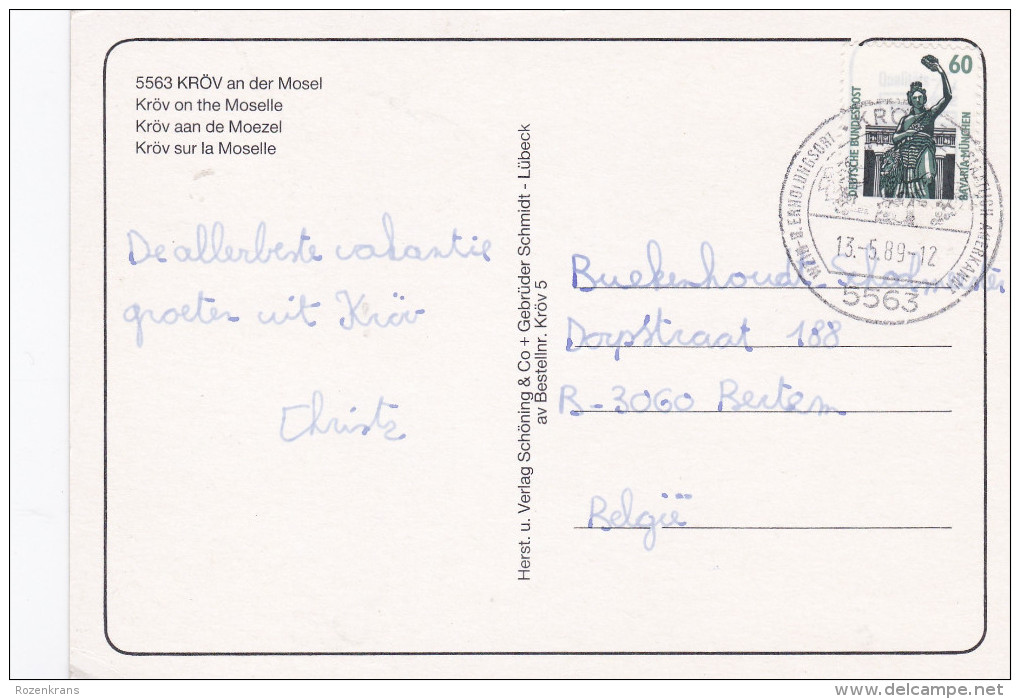 5563 KRÖV an der Mosel
Kröv on the Moselle
Kröv aan de Moezel
Kröv sur la Moselle
De allerbeste vakantie
groeten uit Kröv
Herst. u. Verlag Schöning & Co + Gebrüder Schmidt - Lübeck
av Bestellnr. Kröv 5
60
DEUTSCHE BUNDESPOST
BAVARIA MÜNCHEN
KRÖV
WEIN- U. ERHOLUNGSORT - STAATLICH ANERKANNT
13.-5.89-12
5563
Dorpstraat 188
B-3060 Bertem
België
Rozenkrans
delcampe.net